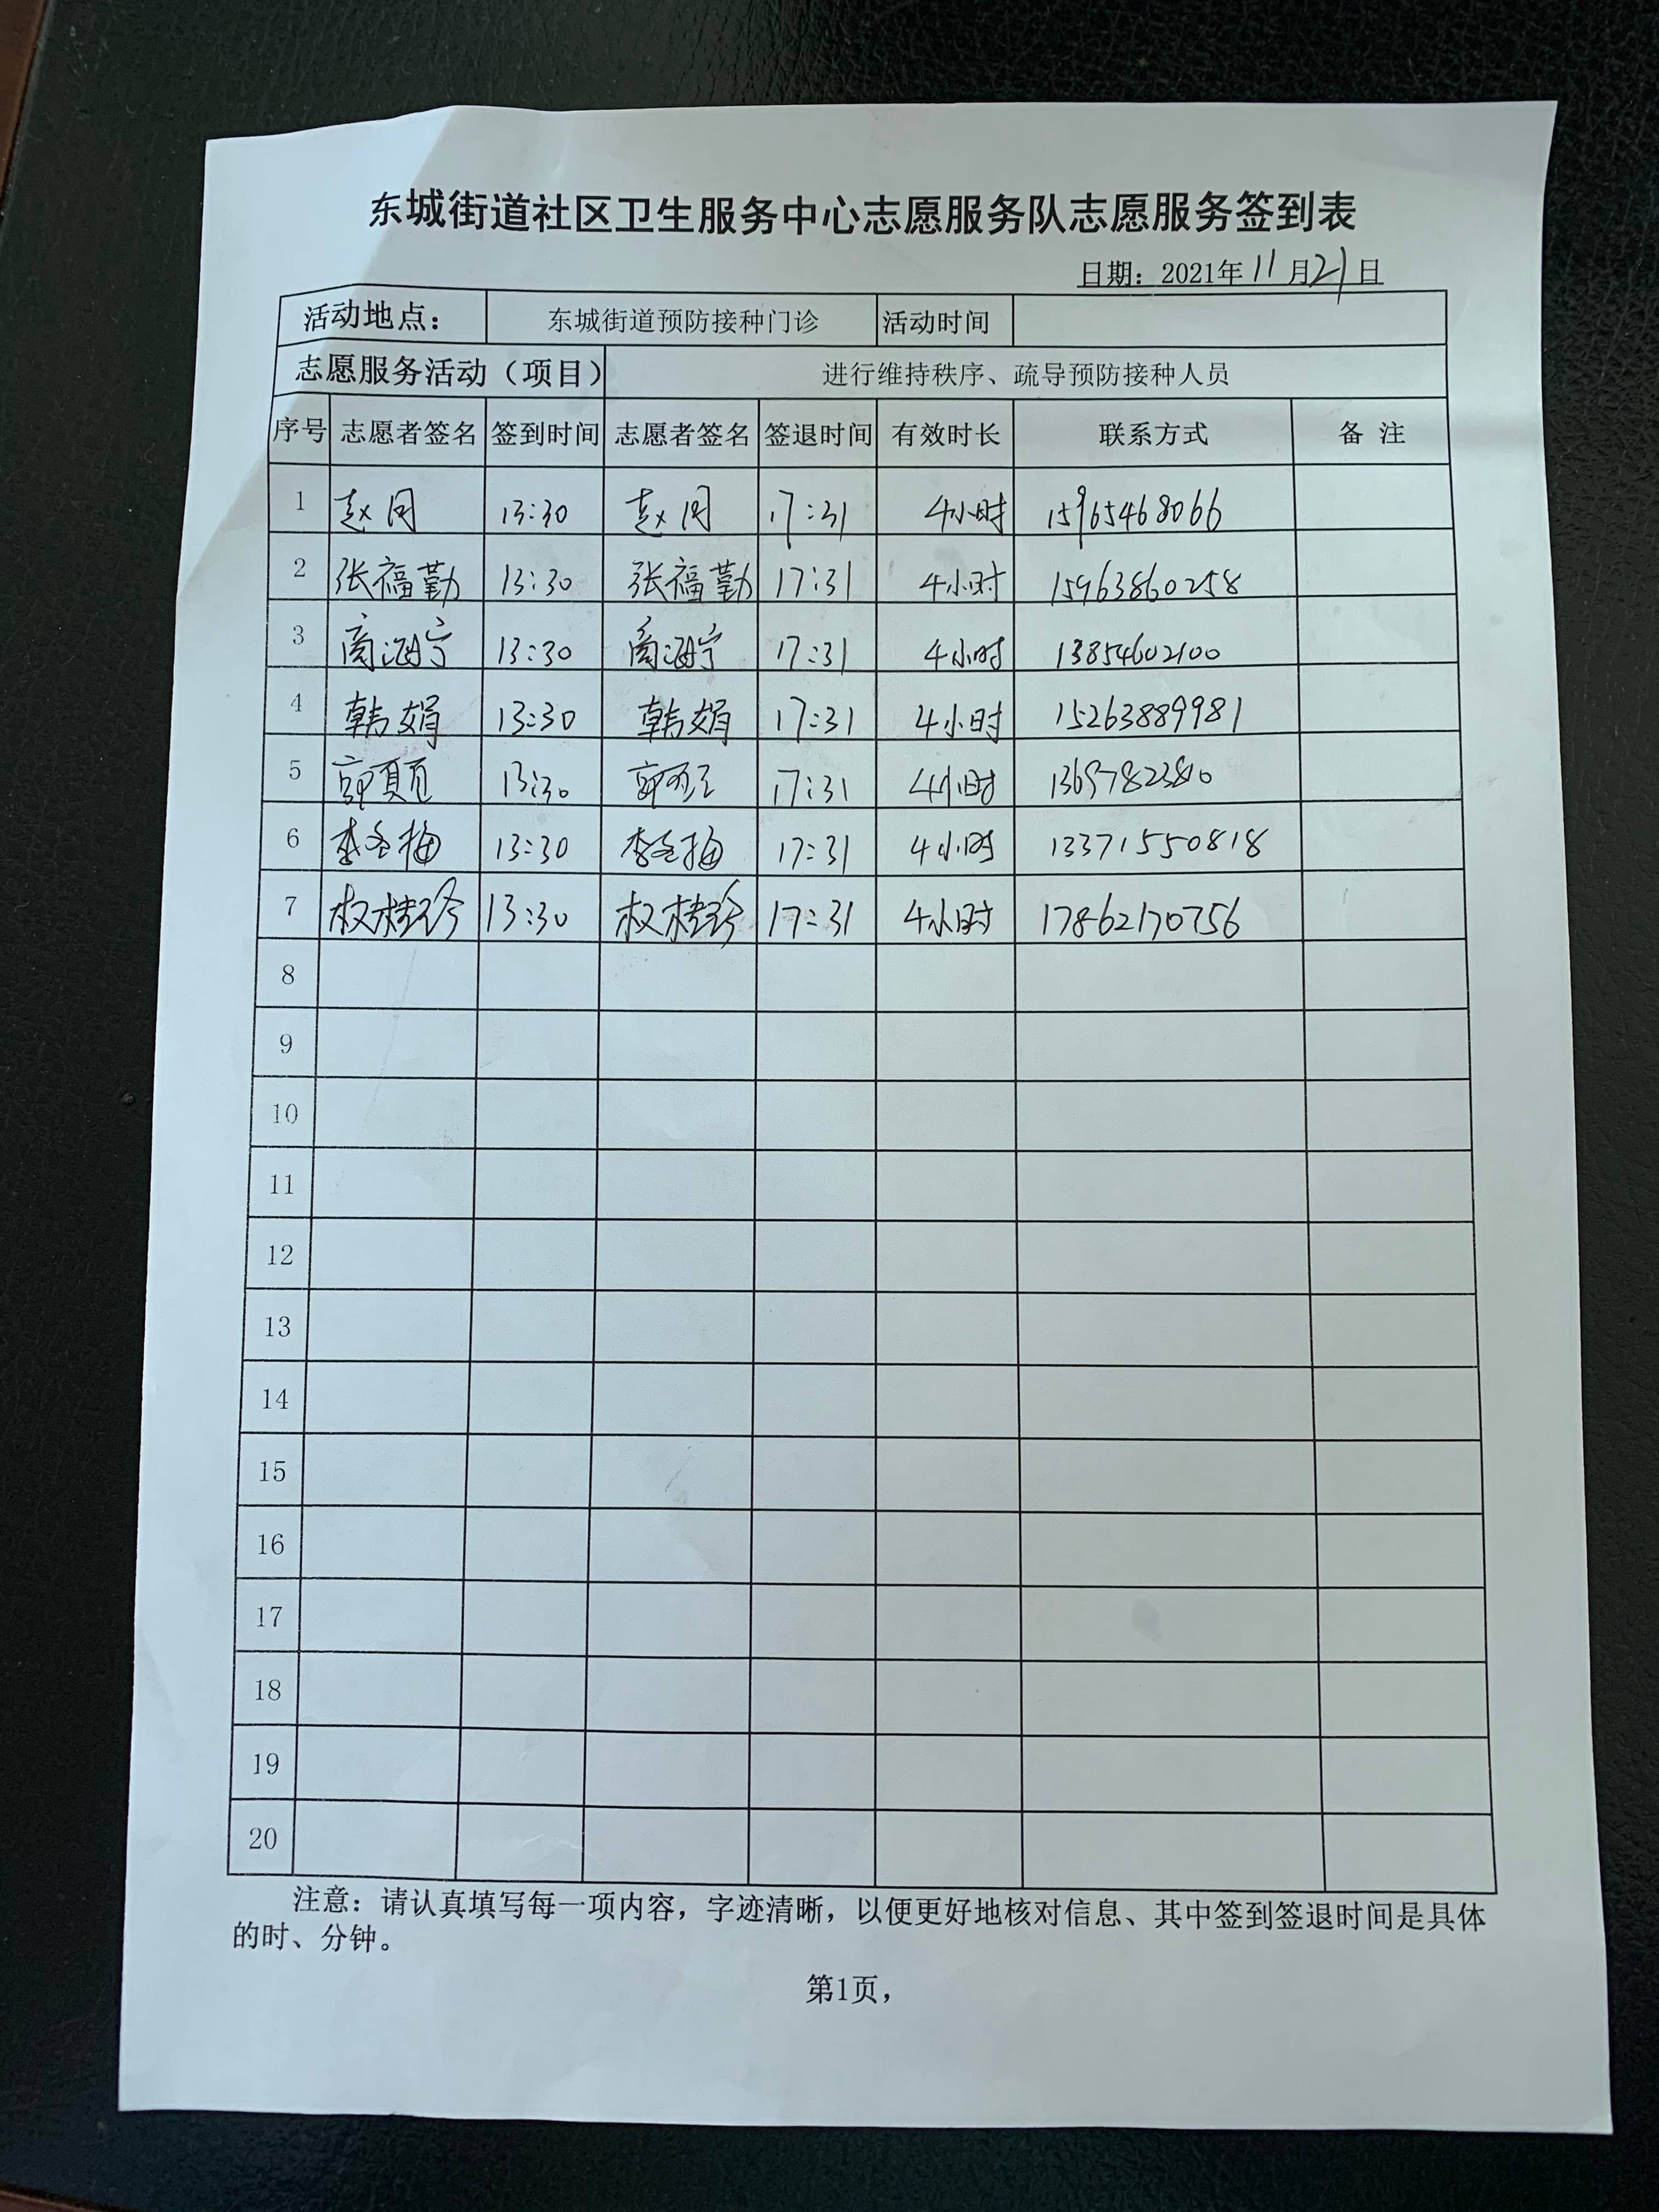 东城街道社区卫生服务中心志愿服务队志愿服务签到表
日期：2021年11月21日
活动地点： 东城街道预防接种门诊 活动时间
志愿服务活动（项目） 进行维持秩序、疏导预防接种人员
序号 志愿者签名 签到时间 志愿者签名 签退时间 有效时长 联系方式 备 注
1 赵 13:30 赵 17:31 4小时 15965468066
2 张福勤 13:30 张福勤 17:31 4小时 15963860258
3 商海宁 13:30 商海宁 17:31 4小时 13854602100
4 韩娟 13:30 韩娟 17:31 4小时 15263889981
5 13:30 17:31 4小时
6 李冬梅 13:30 李冬梅 17:31 4小时 13371550818
7 权桂珍 13:30 权桂珍 17:31 4小时 17862170756
8
9
10
11
12
13
14
15
16
17
18
19
20
注意：请认真填写每一项内容，字迹清晰，以便更好地核对信息、其中签到签退时间是具体
的时、分钟。
第1页，